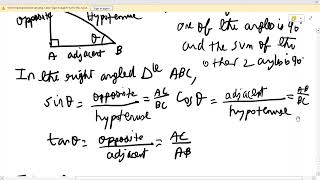 opposite
hypotenuse
θ
A adjacent B
one of the angles is 90
and the sum of the
other 2 angles is 90
In the right angled Δle ABC,
sinθ = opposite/hypotenuse = AC/BC cosθ = adjacent/hypotenuse = AB/BC
tanθ = opposite/adjacent = AC/AB